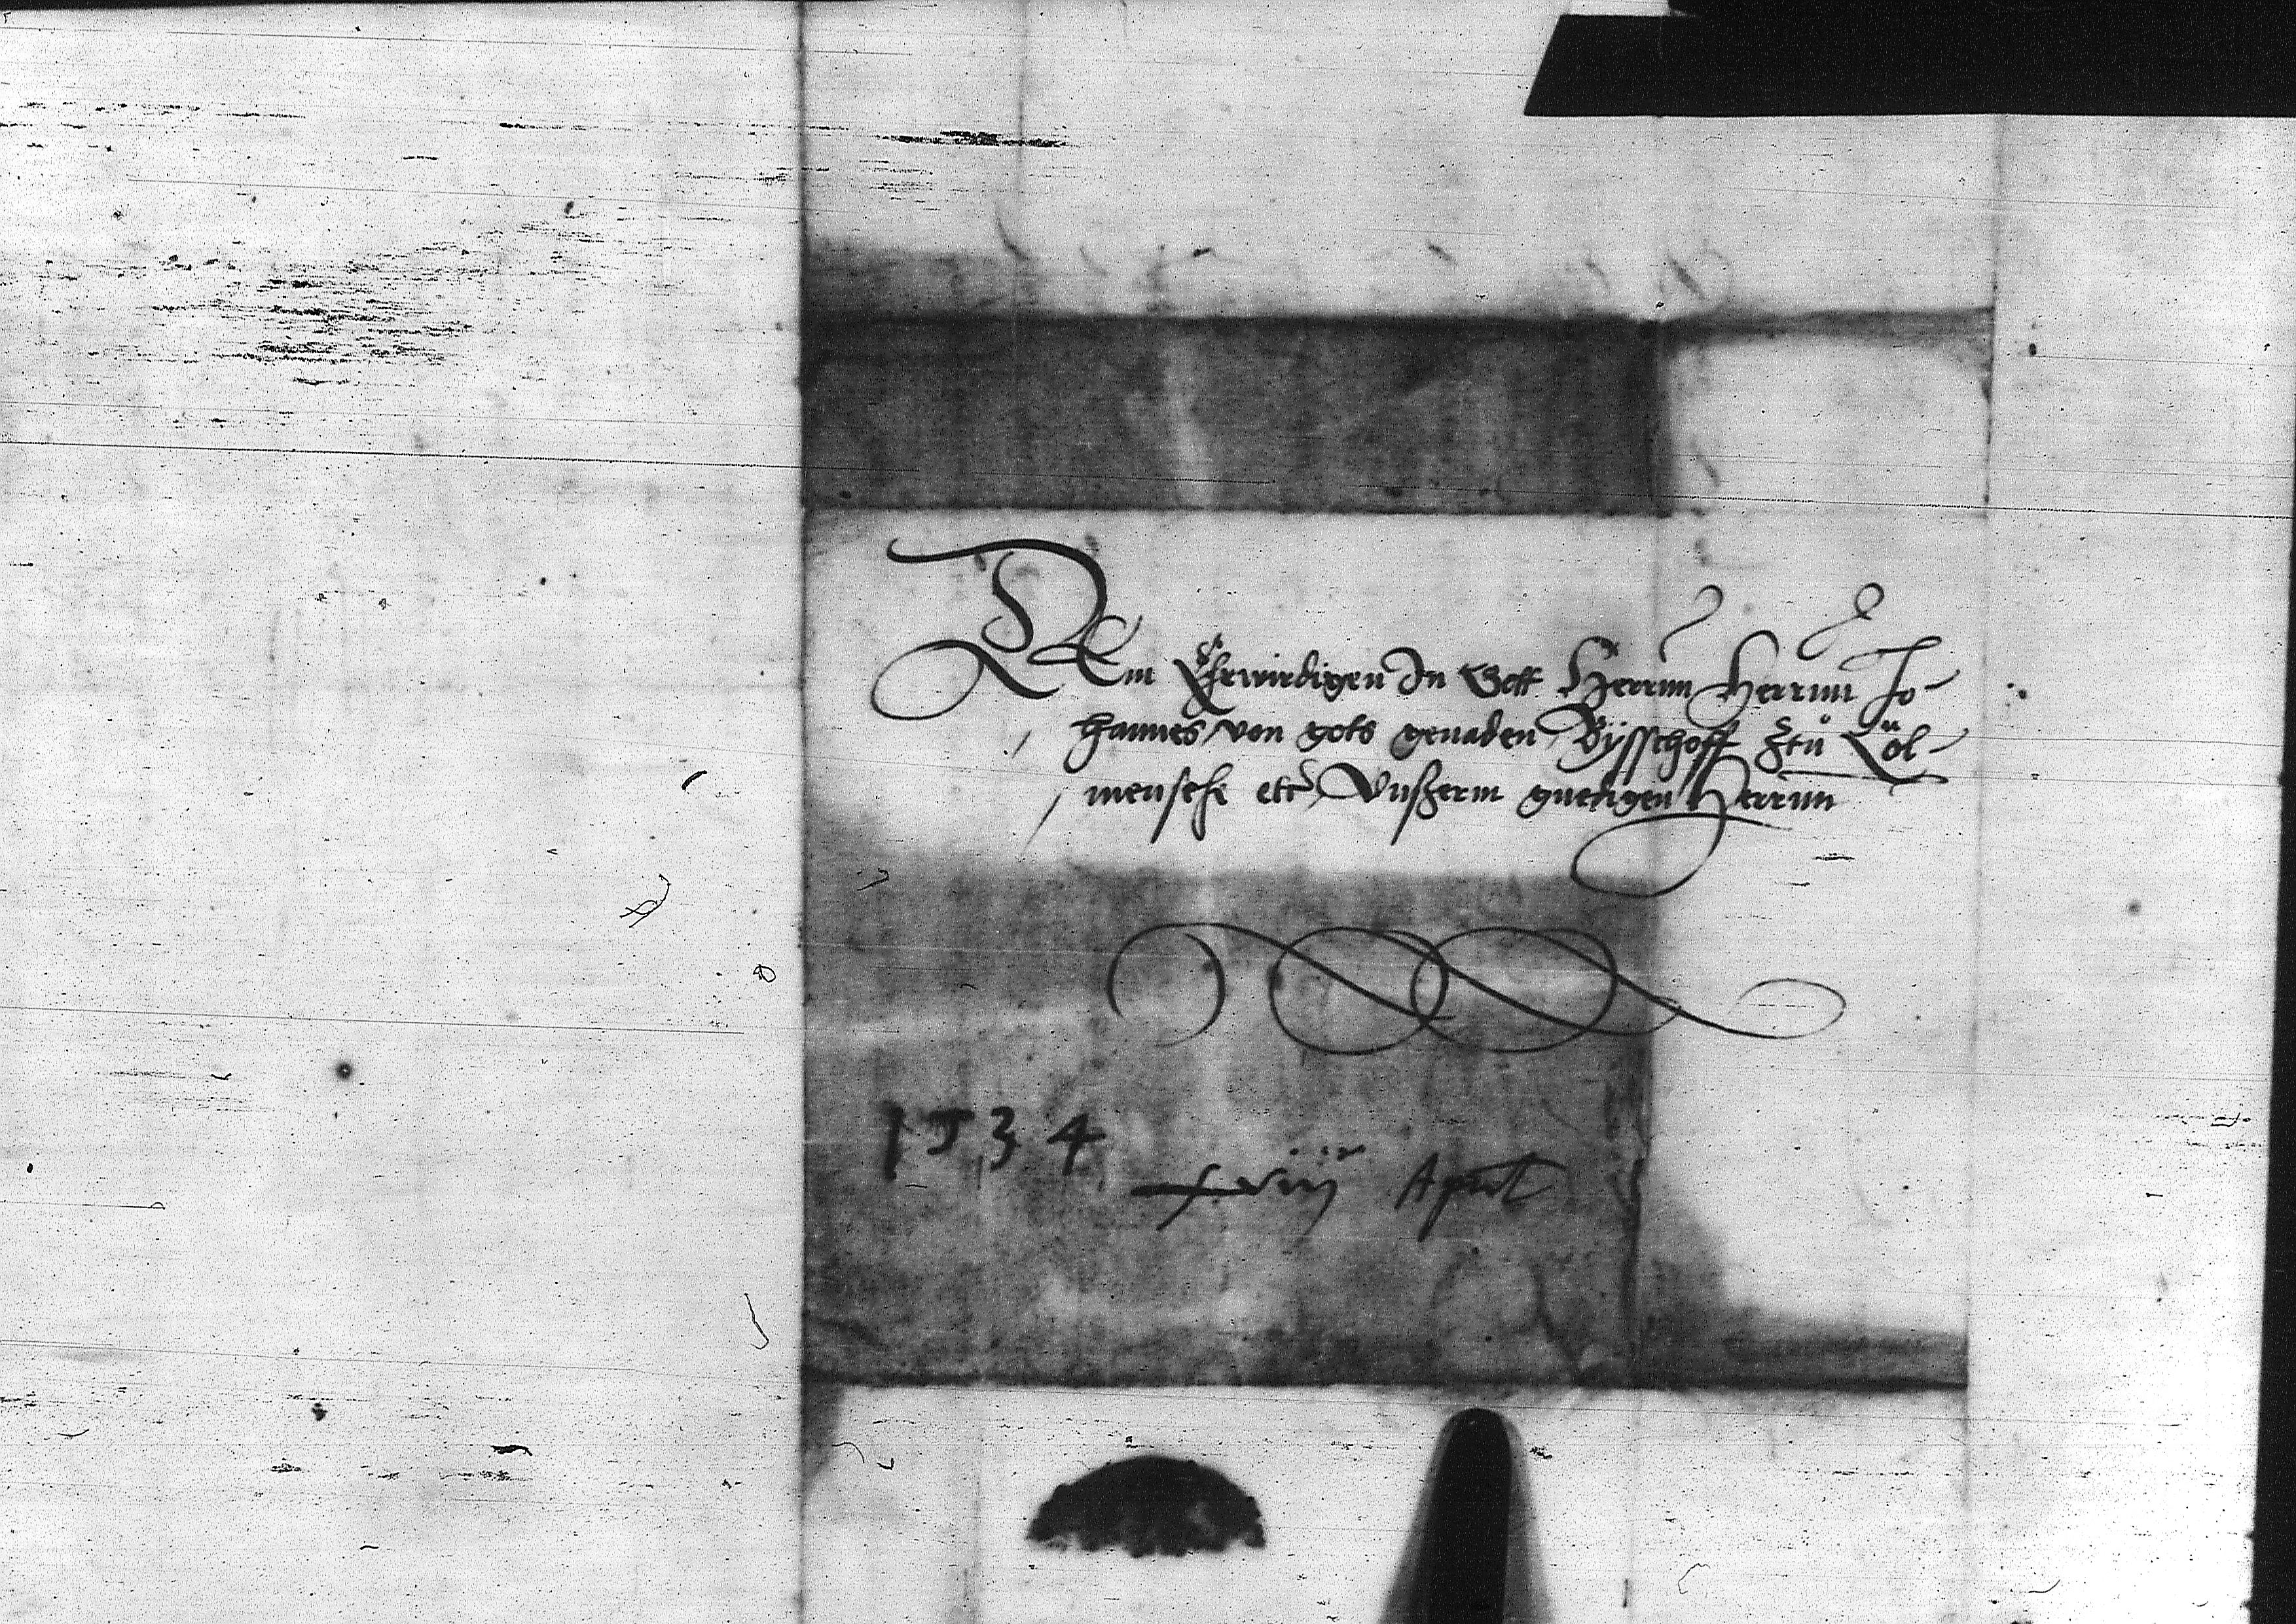 DEm Ehrwirdigen In Gott Herrnn Herrnn Jo-
hannes von gots genaden Bÿsschoff Ztů Cöl-
mensehe etc̃ Vnszerm gnedigen Herrnn
1534
xviij Aprił